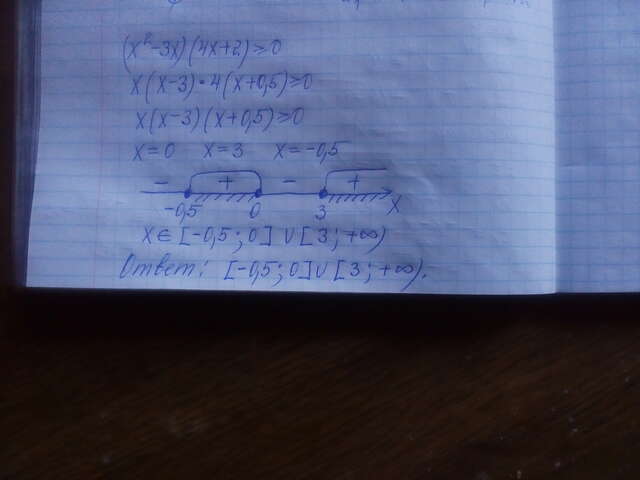 (x²-3x)(4x+2)≥0
x(x-3)·4(x+0,5)≥0
x(x-3)(x+0,5)≥0
x=0 x=3 x=-0,5
- + - +
-0,5 0 3 x
x∈[-0,5;0]∪[3;+∞)
Ответ: [-0,5;0]∪[3;+∞).